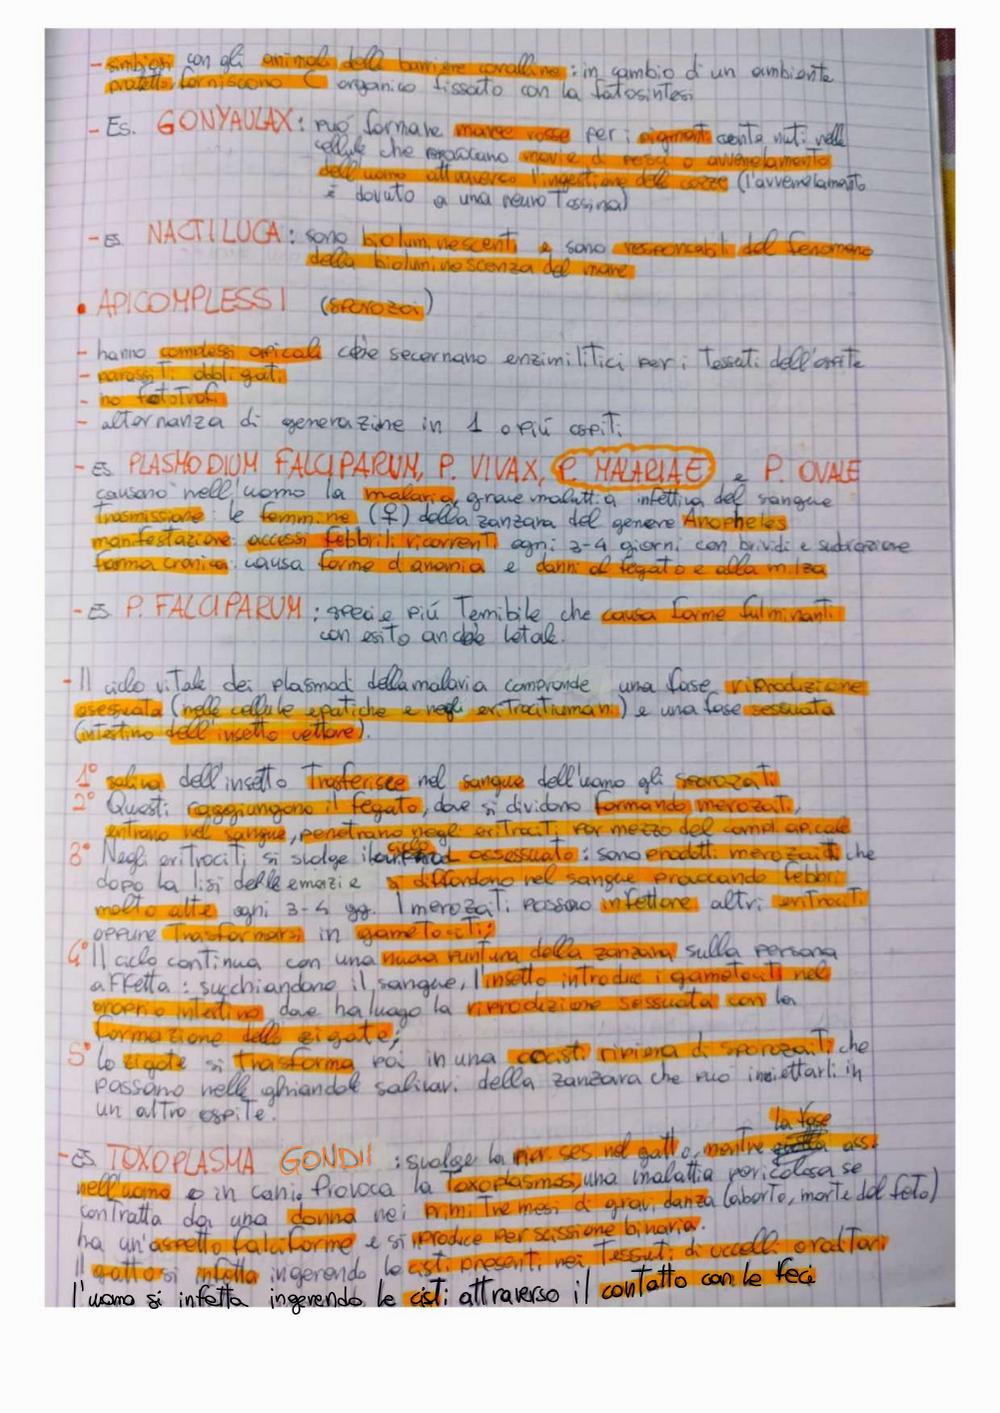 - simbion con gli animali delle barriere coralline: in cambio d'un ambiente
protetto forniscono C organico fissato con la fotosintesi
- Es. GONYAULAX: può formare maree rosse per i pigmenti contenuti nelle
cellule che provocano morie di pesci o avvelenamento
dell'uomo attraverso l'ingestione delle cozze (l'avvenelamento
è dovuto a una neuro Tossina)
- Es NACTILUCA: sono bioluminescenti e sono responsabili del fenomeno
della bioluminescenza del mare
• APICOMPLESSI (sporozoi)
- hanno complessi apicali che secernano enzimi litici per i Tessuti dell'ospite
- parassiti obbligati
- no fototrofi
- alternanza di generazione in 1 o più ospiti
- Es PLASMODIUM FALCIPARUM, P. VIVAX, P. MALARIAE e P. OVALE
causano nell'uomo la malaria, grave malattia infettiva del sangue
Trasmissione: le femmine (♀) della zanzara del genere Anopheles
manifestazione: accessi febbrili ricorrenti ogni 3-4 giorni con brividi e sudorazione
forma cronica: causa forme d'anemia e danni al fegato e alla milza
- Es P. FALCIPARUM: specie più Temibile che causa forme fulminanti
con esito anche letale.
- Il ciclo vitale dei plasmodi della malaria comprende una fase riproduzione
asessuata (nelle cellule epatiche e negli eritrociti umani) e una fase sessuata
(intestino dell'insetto vettore).
1° saliva dell'insetto Trasferisce nel sangue dell'uomo gli sporozoiti
2° Questi raggiungono il fegato, dove si dividono formando merozoiti,
entrano nel sangue, penetrano negli eritrociti per mezzo del compl. apicale
3° Negli eritrociti si svolge il ciclo asessuato: sono prodotti merozoiti che
dopo la lisi delle emazie si diffondono nel sangue provocando febbri
molto alte ogni 3-4 gg. I merozoiti possono infettare altri eritrociti
oppure Trasformarsi in gametociti;
4° Il ciclo continua con una nuova puntura della zanzara sulla persona
affetta: succhiandone il sangue, l'insetto introduce i gametociti nel
proprio intestino dove ha luogo la riproduzione sessuata con la
formazione dello zigote;
5° Lo zigote si trasforma poi in una oocisti ripiena di sporozoiti che
passano nelle ghiandole salivari della zanzara che può iniettarli in
un altro ospite.
la fase
- Es TOXOPLASMA GONDII: svolge la ripr. ses nel gatto, mentre ass.
nell'uomo e in cani. Provoca la Toxoplasmosi, una malattia pericolosa se
contratta da una donna nei primi Tre mesi di gravidanza (aborto, morte del feto)
ha un'aspetto falciforme e si riproduce per scissione binaria.
Il gatto si infetta ingerendo le cisti presenti nei Tessuti di uccelli o rattori
l'uomo si infetta ingerendo le cisti attraverso il contatto con le feci